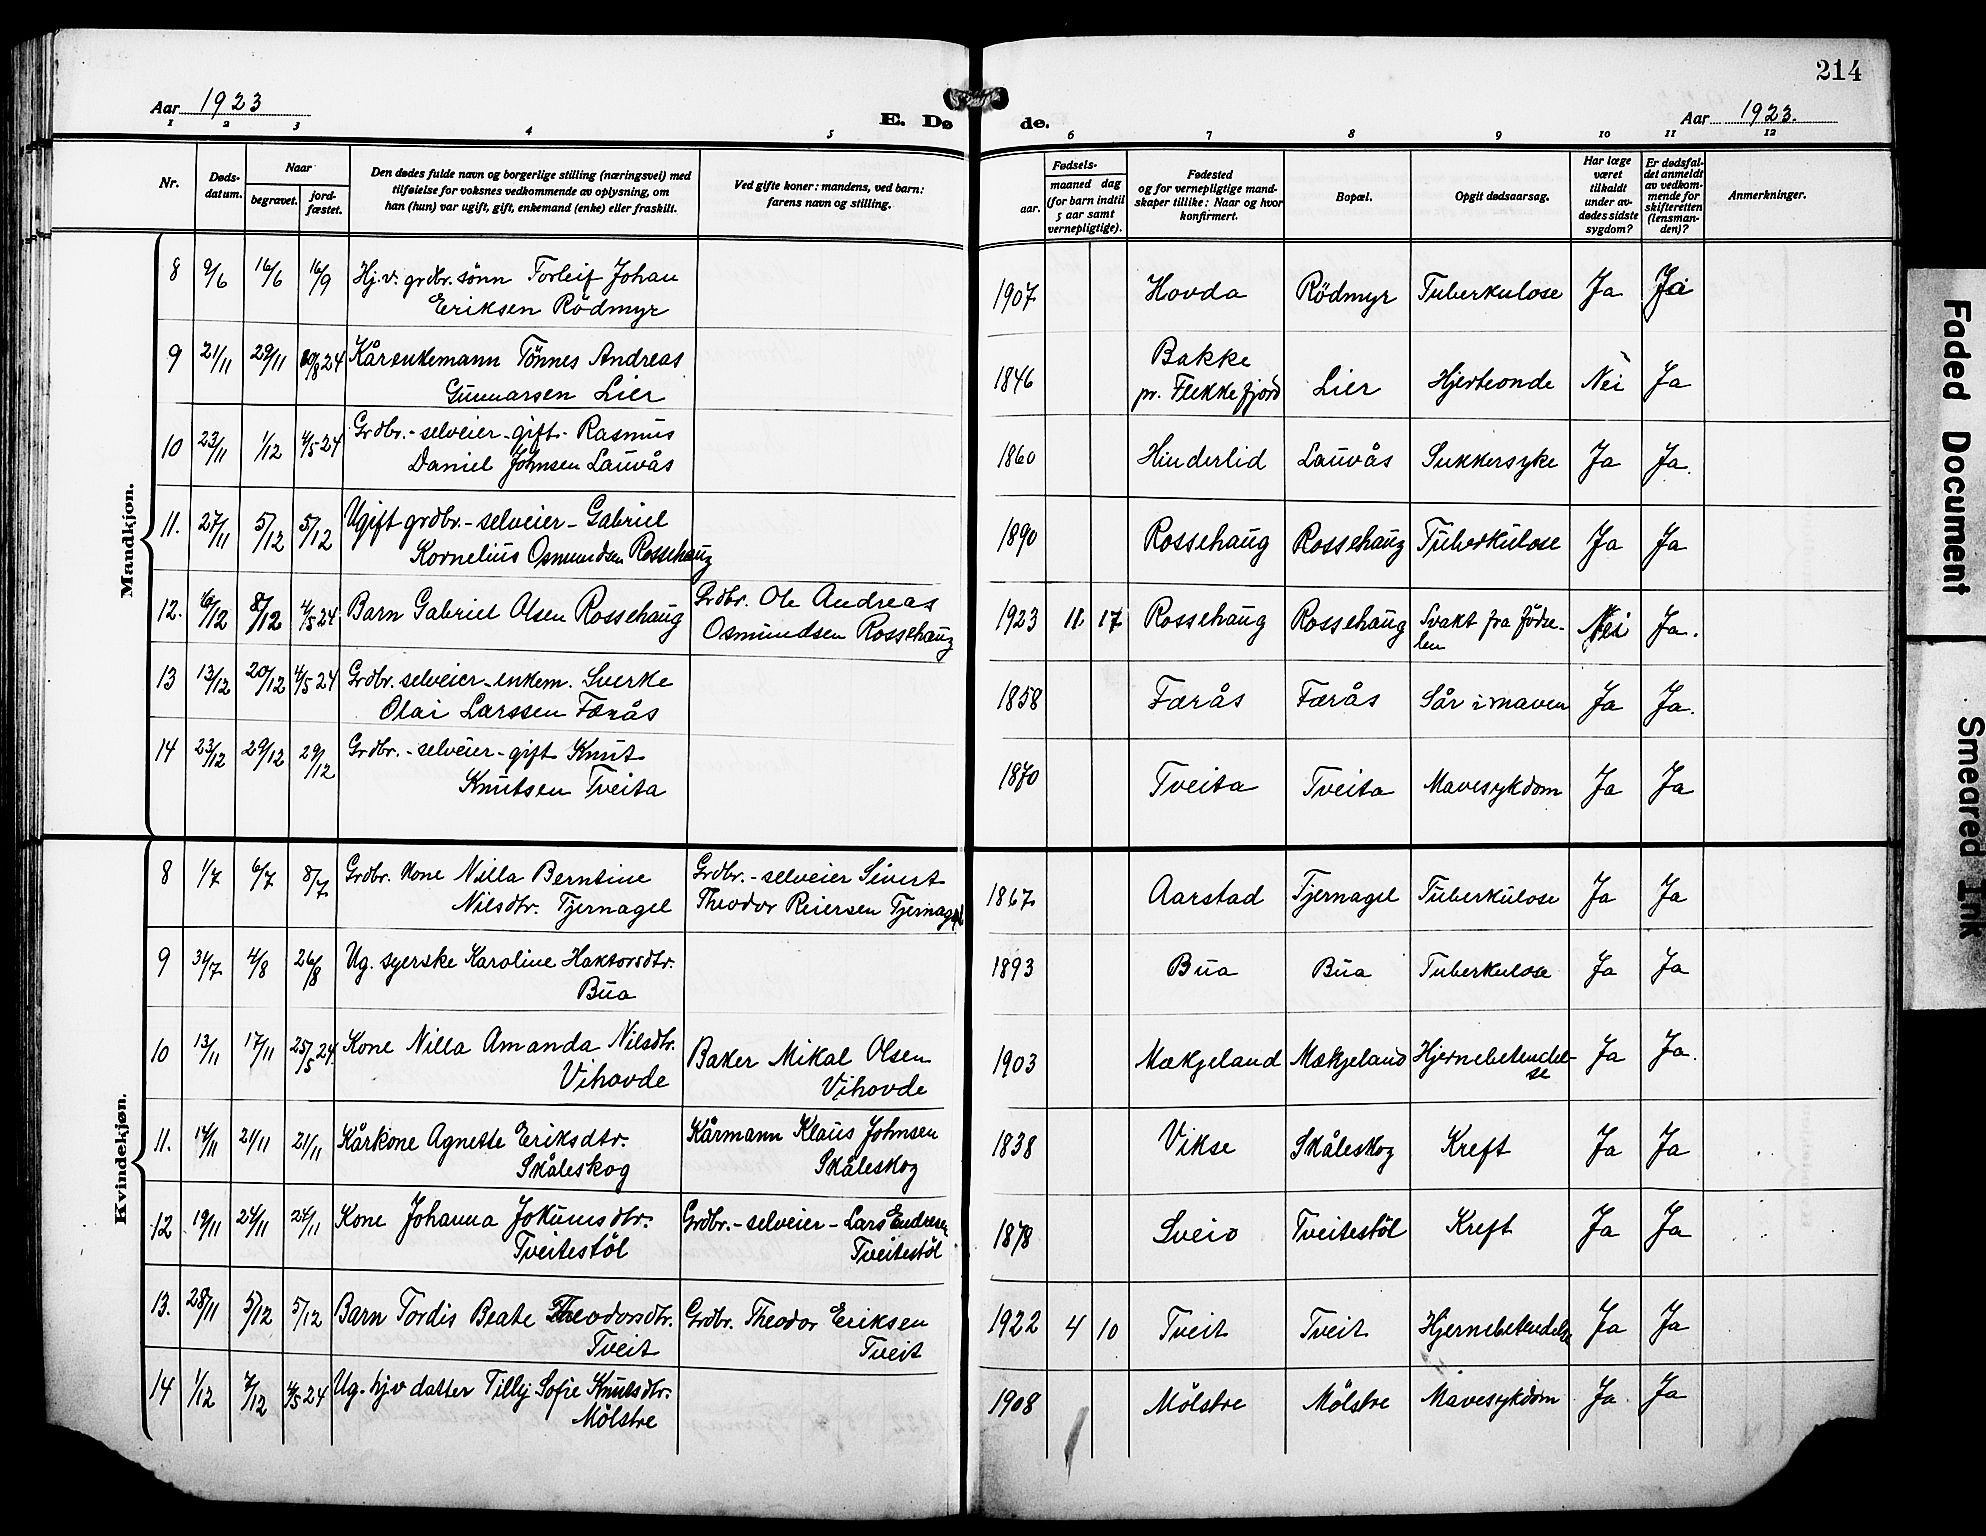 214
Aar 1923
E. Dø
de.
Aar 1923.
1 2 3 4 5 6 7 8 9 10 11 12
Nr.
Døds-
datum.
Naar
begravet.
jord-
fæstet.
Den dødes fulde navn og borgerlige stilling (næringsvei) med
tilføielse for voksnes vedkommende av oplysning, om
han (hun) var ugift, gift, enkemand (enke) eller fraskilt.
Ved gifte koner: mandens, ved barn:
farens navn og stilling.
Fødsels-
aar.
maaned dag
(for barn indtil
5 aar samt
vernepligtige).
Fødested
og for vernepligtige mand-
skaper tillike: Naar og hvor
konfirmert.
Bopæl.
Opgit dødsaarsag.
Har læge
været
tilkaldt
under av-
dødes sidste
sygdom?
Er dødsfal-
det anmeldt
av vedkom-
mende for
skifteretten
(lensman-
den)?
Anmerkninger.
Mandkjøn.
8 9/6 16/6 16/9 Hj.v. grdbr. sönn Torleif Johan
Eriksen Rödmyr
1907 Hovda Rödmyr Tuberkulose Ja Ja
9 21/11 29/11 10/8 24 Kårenkemann Tönnes Andreas
Gunnarsen Lier
1846 Bakke
pr. Flekkefjord Lier Hjerteonde Nei Ja
10 23/11 1/12 4/5-24 Grdbr.-selveier-gift- Rasmus
Daniel Johnsen Lauvås
1860 Hinderlid Lauvås Sukkersyke Ja Ja.
11. 27/11 5/12 5/12 Ugift grdbr.-selveier-Gabriel
Kornelius Osmundsen Rossehaug
1890 Rossehaug Rossehaug Tuberkulose Ja Ja
12. 6/12 8/12 4/5 24 Barn Gabriel Olsen Rossehaug Grdbr. Ole Andreas
Osmundsen Rossehaug
1923 11 17 Rossehaug Rossehaug Svakt fra födse-
len Nei Ja.
13 13/12 20/12 4/5 24 Grdbr. selveier-enkem. Sverke
Olai Larssen Færås
1858 Færås Færås Sår i maven Ja Ja.
14 23/12 29/12 29/12 Grdbr.-selveier-gift Knut
Knutsen Tveita
1870 Tveita Tveita Mavesykdom Ja Ja
Kvindekjøn.
8 1/7 6/7 8/7 Grdbr. kone Nilla Berntine
Nilsdtr. Tjernagel
Grdbr.-selveier Sivert
Theodor Reiersen Tjernagel
1867 Aarstad Tjernagel Tuberkulose Ja Ja
9 31/7 4/8 26/8 Ug. syerske Karoline Haktorsdtr.
Bua
1893 Bua Bua Tuberkulose Ja Ja
10 13/11 17/11 25/5 24 Kone Nilla Amanda Nilsdtr.
Vihovde
Baker Mikal Olsen
Vihovde
1903 Mækjeland Mækjeland Hjernebetendel-
se Ja Ja.
11. 14/11 21/11 21/11 Kårkone Agnette Eriksdtr.
Skåleskog
Kårmann Klaus Johnsen
Skåleskog
1838 Vikse Skåleskog Kreft Ja Ja
12 19/11 24/11 24/11 Kone Johanna Jokumsdtr.
Tveitestöl
Grdbr.-selveier-Lars Endresen
Tveitestöl
1878 Sveio Tveitestöl Kreft Ja Ja
13. 28/11 5/12 5/12 Barn Tordis Beate Theodorsdtr.
Tveit
Grdbr. Theodor Eriksen
Tveit
1922 4 10 Tveit Tveit Hjernebetendelse Ja Ja
14 1/12 7/12 4/5 24 Ug. hjv datter Tilly Sofie Knutsdtr.
Mölstre
1908 Mölstre Mölstre Mavesykdom Ja Ja
Faded Document
Smeared Ink